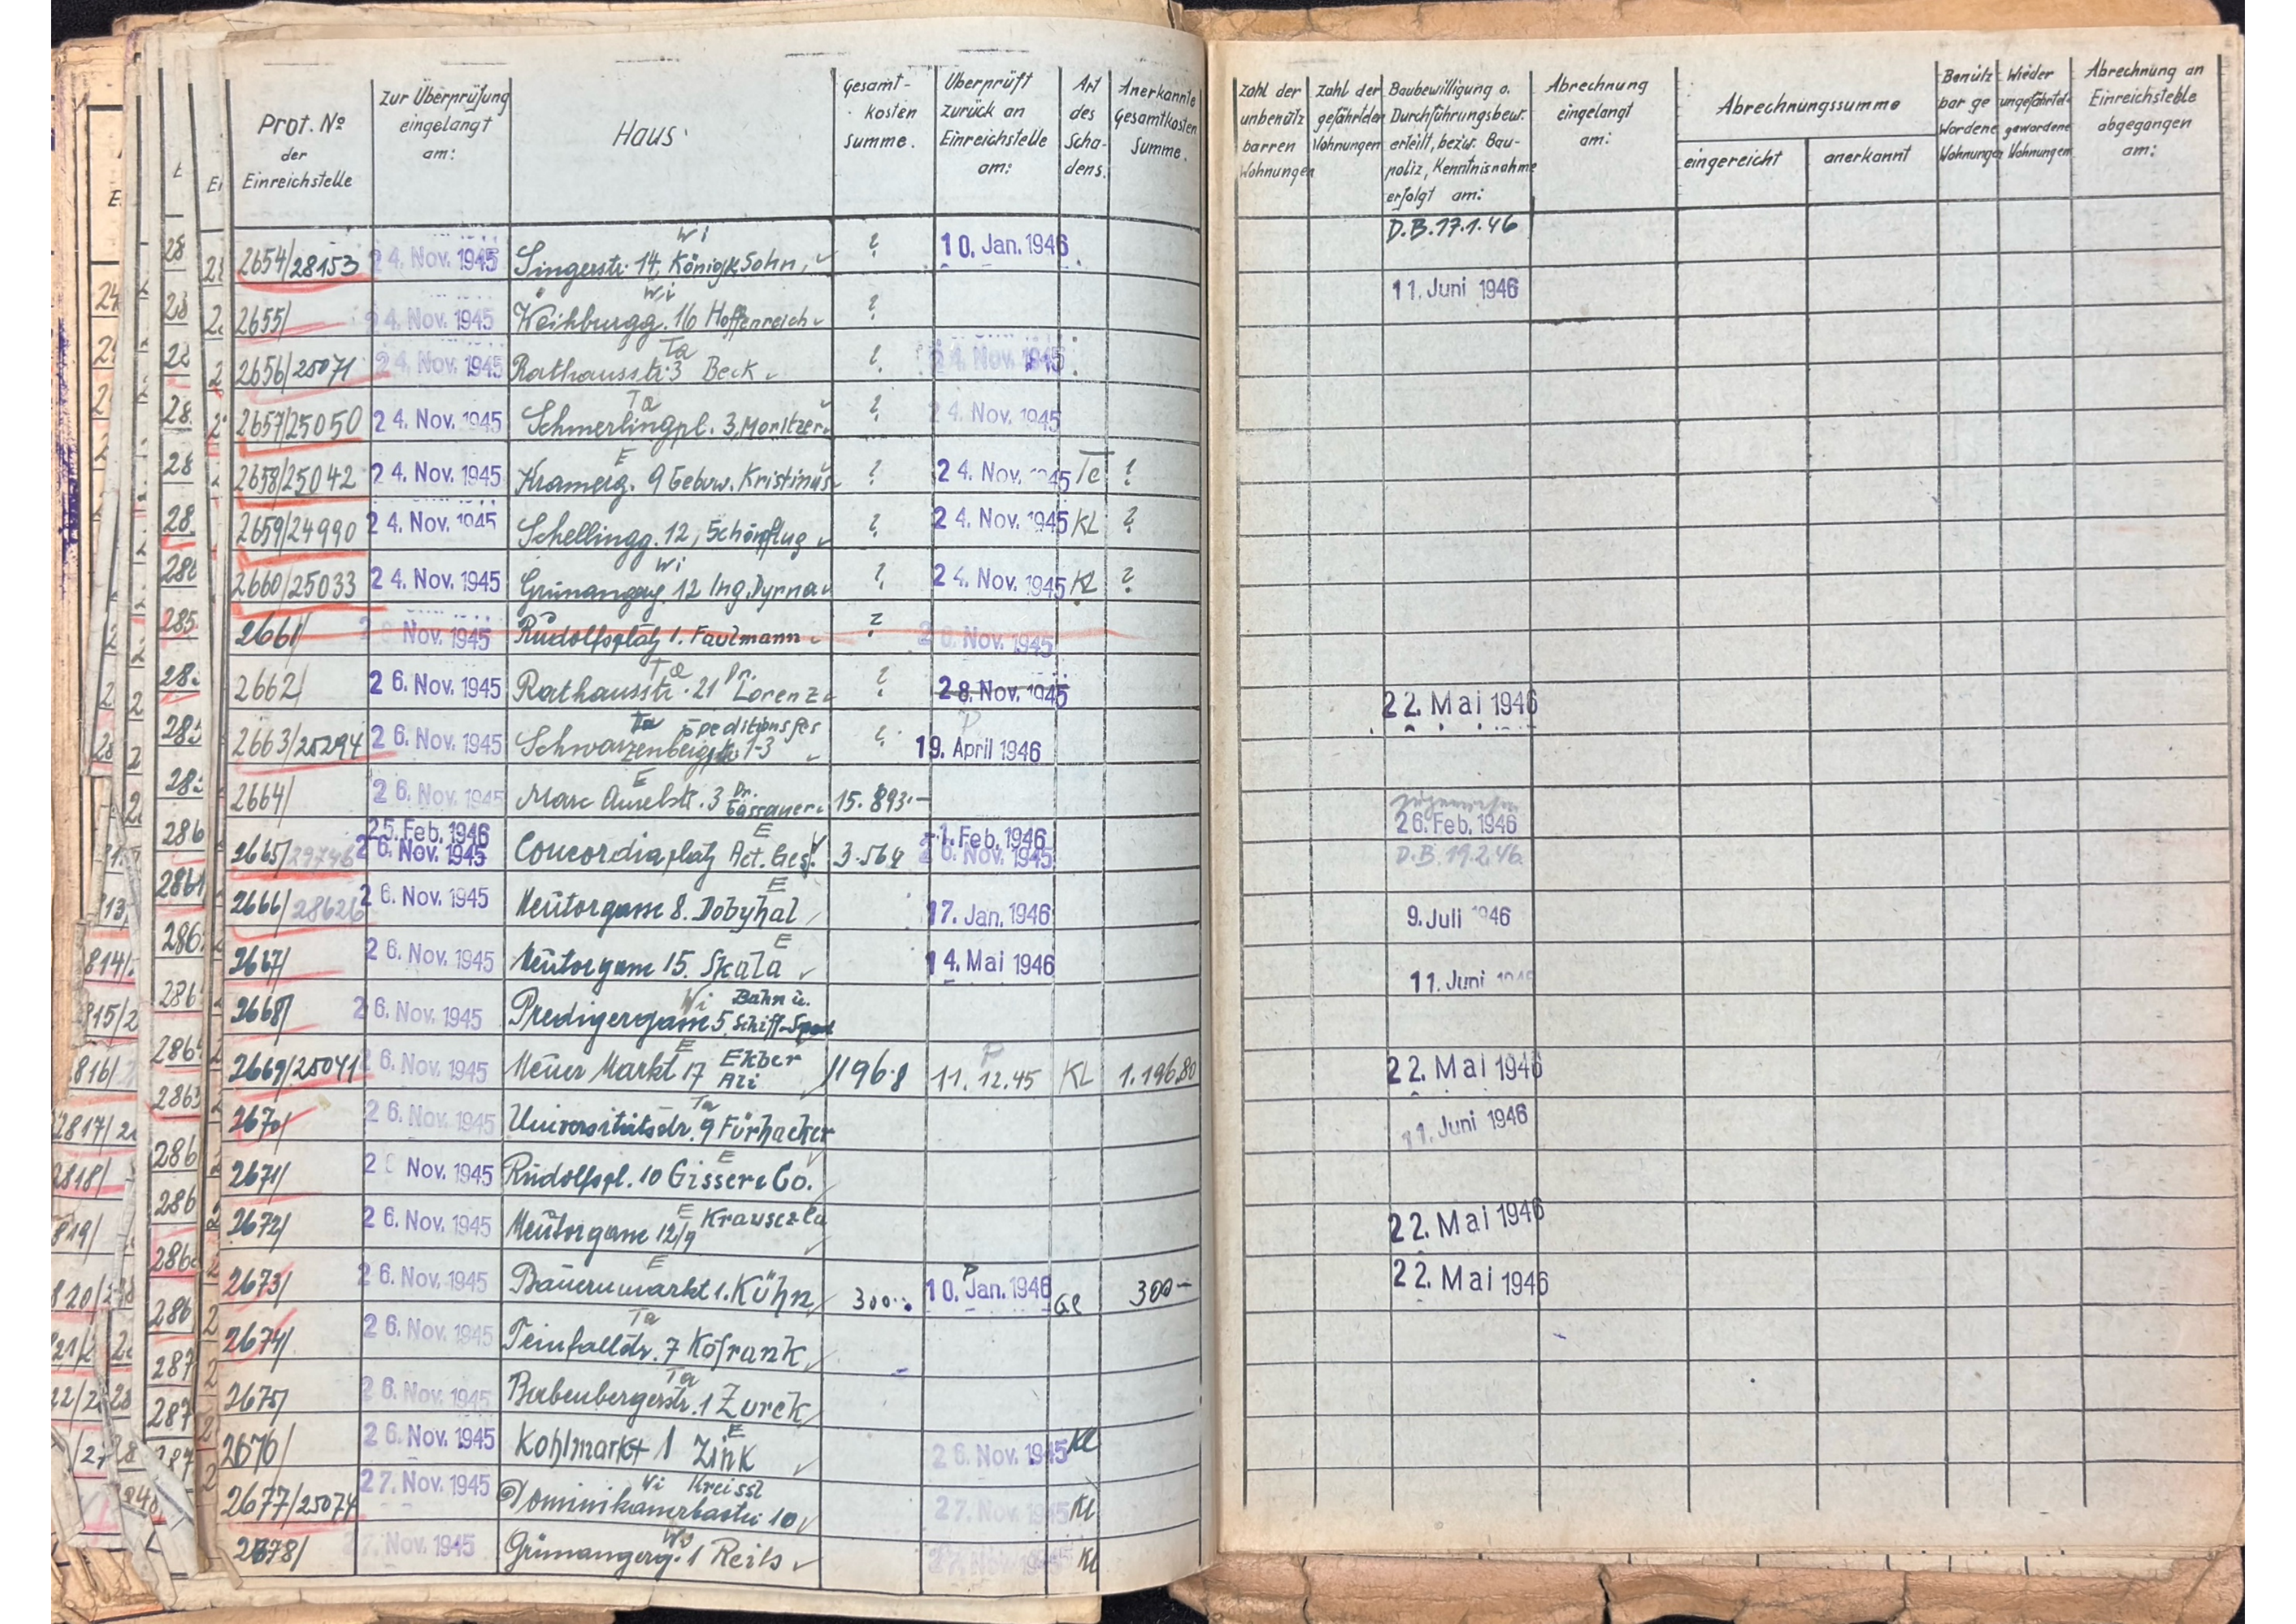 Prot. No der Einreichstelle | Zur Überprüfung eingelangt am: | Haus | Gesamt-kosten Summe. | Überprüft zurück an Einreichstelle am: | Art des Scha-dens. | Anerkannte Gesamtkosten Summe. | Zahl der unbenütz barren Wohnungen | Zahl der gefährdeten Wohnungen | Baubewilligung o. Durchführungsbew. erteilt, bezw. Bau-poliz, Kenntnisnahme erfolgt am: | Abrechnung eingelangt am: | Abrechnungssumme eingereicht | anerkannt | Benütz bar ge wordene Wohnungen | Wieder ungefährdet gewordene Wohnungen | Abrechnung an Einreichstelle abgegangen am:
2654/28153 | 24. Nov. 1945 | Wi Singerstr. 14, König & Sohn, | ? | 10. Jan. 1946 | D.B. 17.1.46
2655/ | 24. Nov. 1945 | Wi Weihburgg. 16 Hoffenreich | ? | 11. Juni 1946
2656/25071 | 24. Nov. 1945 | Ta Rathausstr. 3 Beck | ? | 24. Nov. 1945
2657/25050 | 24. Nov. 1945 | Ta Schmerlingpl. 3, Moritzer | ? | 24. Nov. 1945
2658/25042 | 24. Nov. 1945 | E Kramerg. 9 Gebrw. Kristinus | ? | 24. Nov. 1945 | Te | ?
2659/24990 | 24. Nov. 1945 | Schellingg. 12, Schönflug | ? | 24. Nov. 1945 | KL | ?
2660/25033 | 24. Nov. 1945 | Wi Grünangerg. 12 Ing. Dyrna | ? | 24. Nov. 1945 | KL | ?
2661/ | 26. Nov. 1945 | Rudolfsplatz 1. Faulmann | ? | 26. Nov. 1945
2662/ | 26. Nov. 1945 | Ta Rathausstr. 21 Dr. Lorenz | ? | 28. Nov. 1945 | 22. Mai 1946
2663/25294 | 26. Nov. 1945 | Ta Speditionsges Schwarzenbergpl. 1-3 | ? | P 19. April 1946
2664/ | 26. Nov. 1945 | E Marc Aurelstr. 3 Dr. Gassauer | 15.893.–
2665/29746 | 25. Feb. 1946 26. Nov. 1945 | E Concordiaplatz Act. Ges. | 3.564 | 1. Feb. 1946 26. Nov. 1945 | 26. Feb. 1946 D.B. 19.2.46.
2666/28626 | 26. Nov. 1945 | E Neutorgasse 8. Dobyhal | 17. Jan. 1946 | 9. Juli 1946
2667/ | 26. Nov. 1945 | E Neutorgasse 15. Skala | 14. Mai 1946 | 11. Juni 1946
2668/ | 26. Nov. 1945 | Wi Predigergasse 5. Bahn u. Schiff-Sped
2669/25041 | 26. Nov. 1945 | E Neuer Markt 17 Ekber Ali | 1196.8 | P 11.12.45 | KL | 1.196.80 | 22. Mai 1946
2670/ | 26. Nov. 1945 | Ta Universitätsstr. 9 Fürhacker | 11. Juni 1946
2671/ | 26 Nov. 1945 | E Rudolfspl. 10 Gisser & Co.
2672/ | 26. Nov. 1945 | E Neutorgasse 12/9 Krauscz La | 22. Mai 1946
2673/ | 26. Nov. 1945 | E Bauernmarkt 1. Kühn | 300.- | P 10. Jan. 1946 | Gl | 300– | 22. Mai 1946
2674/ | 26. Nov. 1945 | Ta Teinfaltstr. 7 Kofrank
2675/ | 26. Nov. 1945 | Ta Babenbergerstr. 1 Zurek
2676/ | 26. Nov. 1945 | E Kohlmarkt 1 Zink | 26. Nov. 1945 | Kl
2677/25074 | 27. Nov. 1945 | Wi Kreissl Dominikanerbastei 10 | 27. Nov. 1945 | Kl
2678/ | 27. Nov. 1945 | Wo Grünangerg. 1 Reits | 27. Nov. 1945 | Kl